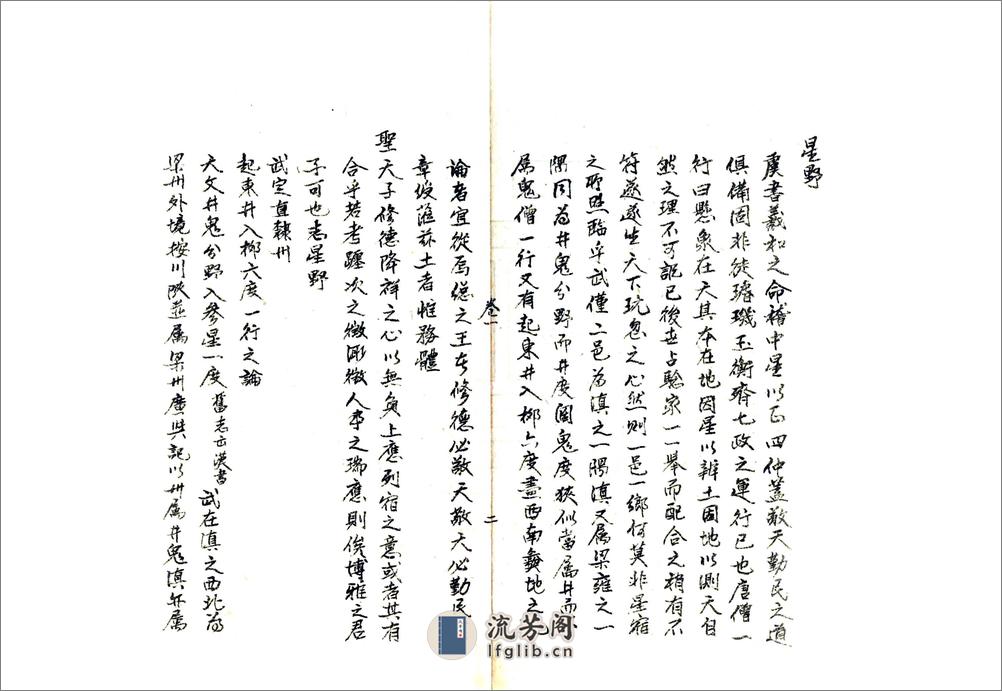 星野
虞書羲和之命稽中星以正四仲蓋敬天勤民之道
俱備固非徒璿璣玉衡齊七政之運行已也唐僧一
行曰懸象在天其本在地因星以辨土因地以測天自
然之理不可誣已後世占驗家一一舉而配合之稍有不
符遂遂生天下玩忽之心然則一邑一鄉何莫非星宿
之所照臨乎武僅二邑為滇之一隅滇又屬梁雍之一
隅同為井鬼分野而井度闊鬼度狹似當屬井而
屬鬼僧一行又有起東井入柳六度盡西南彝地之
卷一
二
論者宜從焉總之王者修德必敬天敬天必勤民
章綬涖茲土者惟務體
聖天子修德降祥之心以無負上應列宿之意或者其有
合乎若考躔次之微渺徵人事之瑞應則俟博雅之君
子可也志星野
武定直隸州
起東井入柳六度一行之論
天文井鬼分野入參星一度舊志云漢書武在滇之西北為
梁州外境按川陝並屬梁州廣輿記以卅屬井鬼滇亦屬
流芳阁
lfglib.cn